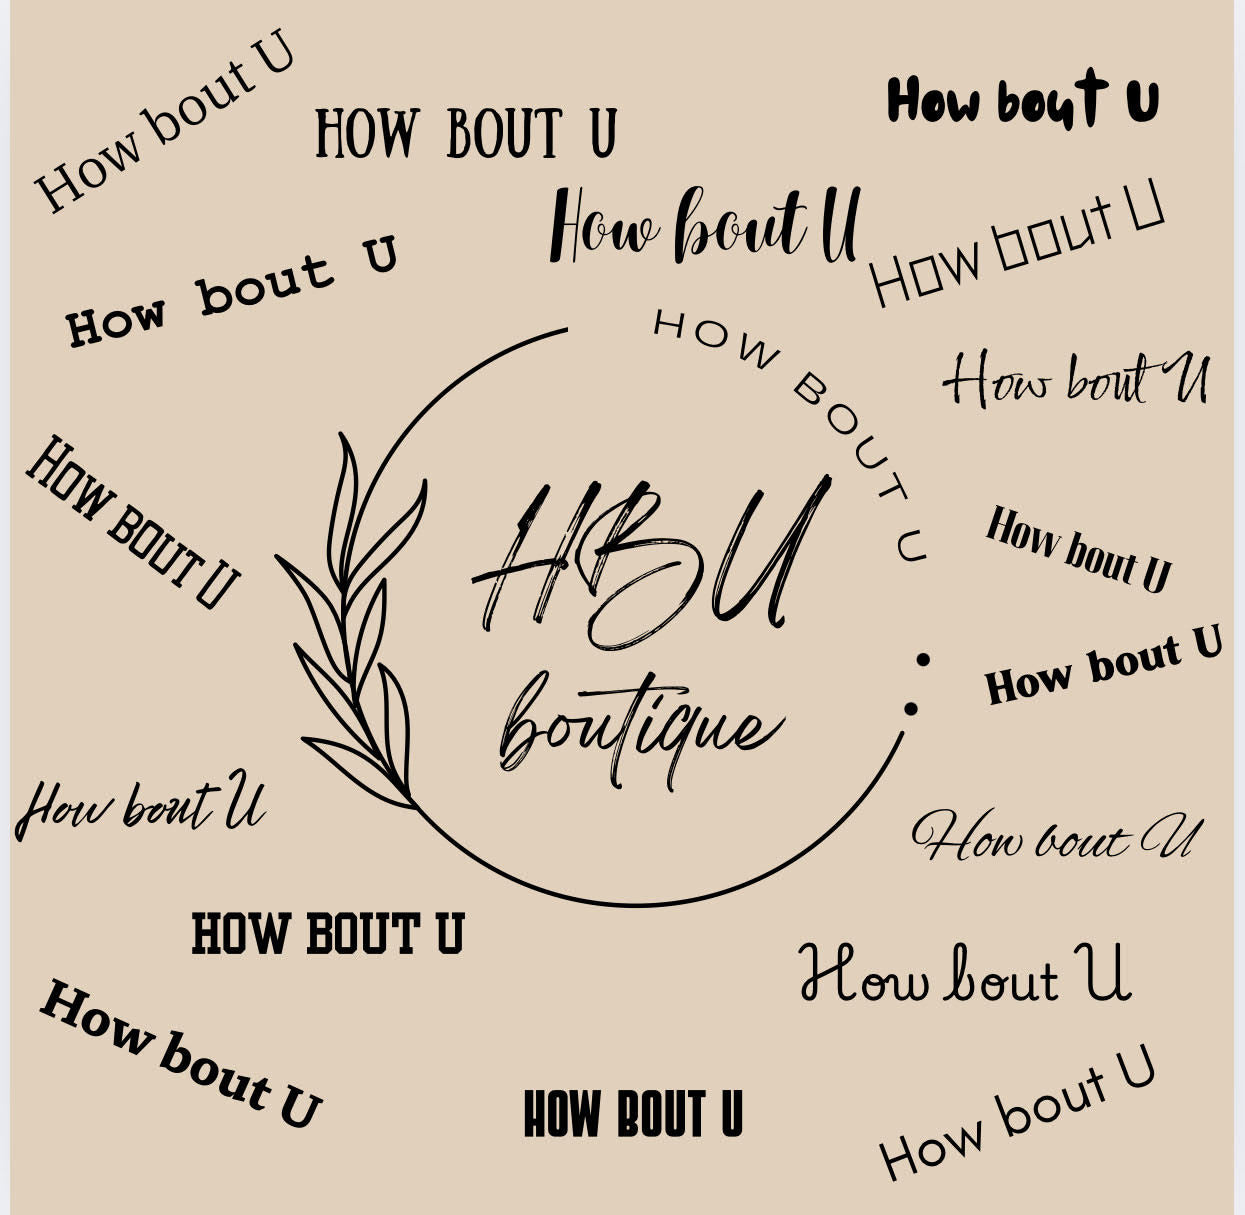 How bout U
HOW BOUT U
How bout U
How bout U
How bout U
How bout U
HOW BOUT U
How bout U
HOW BOUT U
HBU
boutique
How bout U
How bout U
How bout U
How bout U
HOW BOUT U
How bout U
How bout U
HOW BOUT U
How bout U